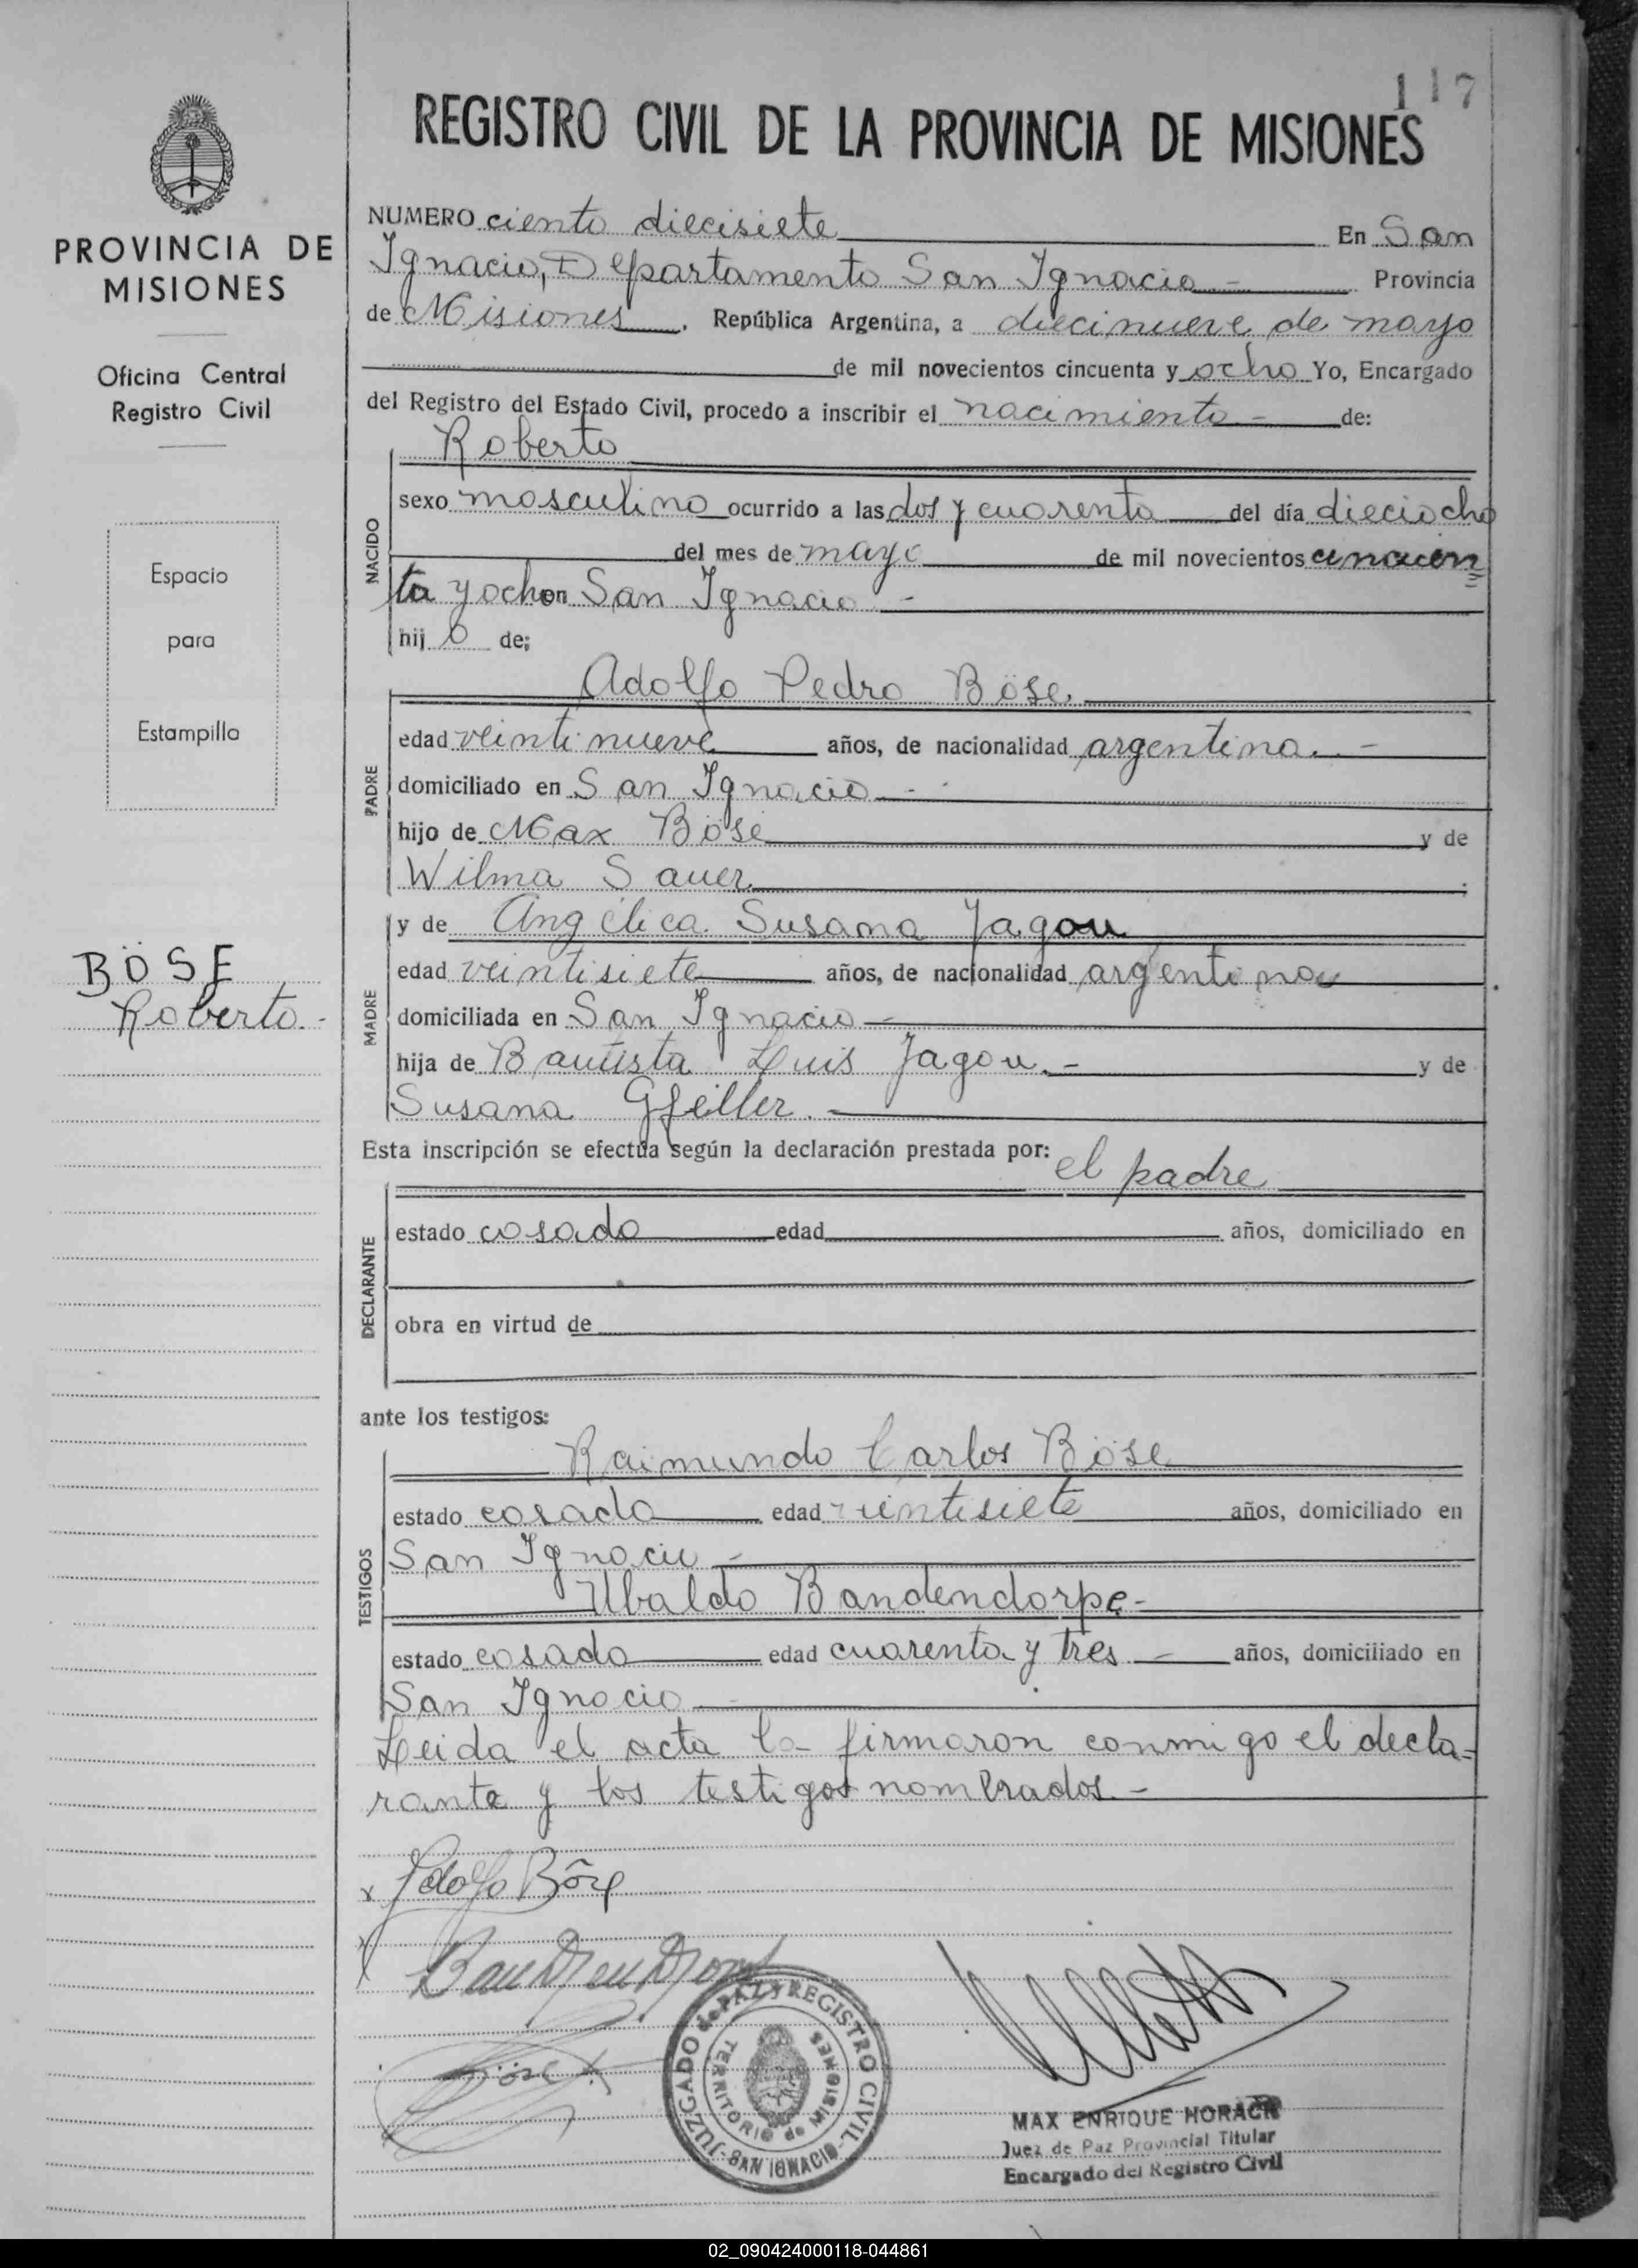 117
REGISTRO CIVIL DE LA PROVINCIA DE MISIONES
PROVINCIA DE
MISIONES
Oficina Central
Registro Civil
Espacio
para
Estampilla
BÖSE
Roberto.-
NUMERO ciento diecisiete En San
Ignacio, Departamento San Ignacio.- Provincia
de Misiones, República Argentina, a diecinueve de mayo
de mil novecientos cincuenta y ocho Yo, Encargado
del Registro del Estado Civil, procedo a inscribir el nacimiento.- de:
Roberto
NACIDO
sexo masculino ocurrido a las dos y cuarenta del día dieciocho
del mes de mayo de mil novecientos cincuen
ta y ocho en San Ignacio.-
hijo de:
Adolfo Pedro Böse
PADRE
edad veintinueve años, de nacionalidad argentina.-
domiciliado en San Ignacio.-
hijo de Max Böse y de
Wilma Sauer ;
MADRE
y de Angélica Susana Jagou
edad veintisiete años, de nacionalidad argentina
domiciliada en San Ignacio.-
hija de Bautista Luis Jagou.- y de
Susana Gfeller.
Esta inscripción se efectúa según la declaración prestada por: el padre
DECLARANTE
estado casado edad años, domiciliado en
obra en virtud de
ante los testigos:
Raimundo Carlos Böse
TESTIGOS
estado casado edad veintisiete años, domiciliado en
San Ignacio.-
Ubaldo Bandendorpe-
estado casado edad cuarenta y tres.- años, domiciliado en
San Ignacio.-
Leida el acta la firmaron conmigo el decla=
rante y los testigos nombrados.-
x Adolfo Böse
JUZGADO de PAZ y REGISTRO CIVIL
TERRITORIO de MISIONES
-SAN IGNACIO-
MAX ENRIQUE HORACK
Juez de Paz Provincial Titular
Encargado del Registro Civil
02_090424000118-044861